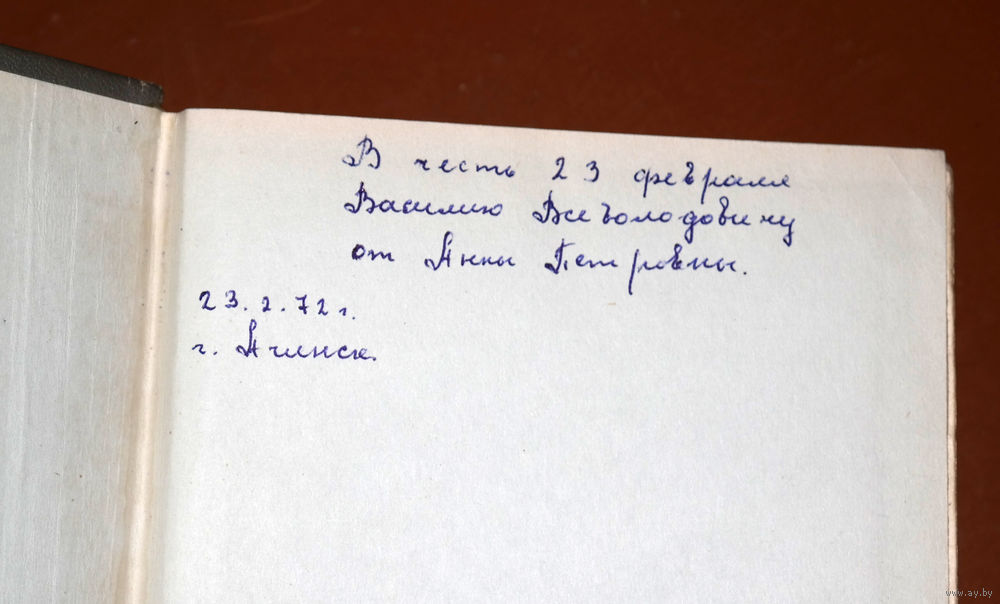 В честь 23 февраля
Василию Всеволодовичу
от Анны Петровны.
23.2.72 г.
г. Ачинск.
www.ay.by